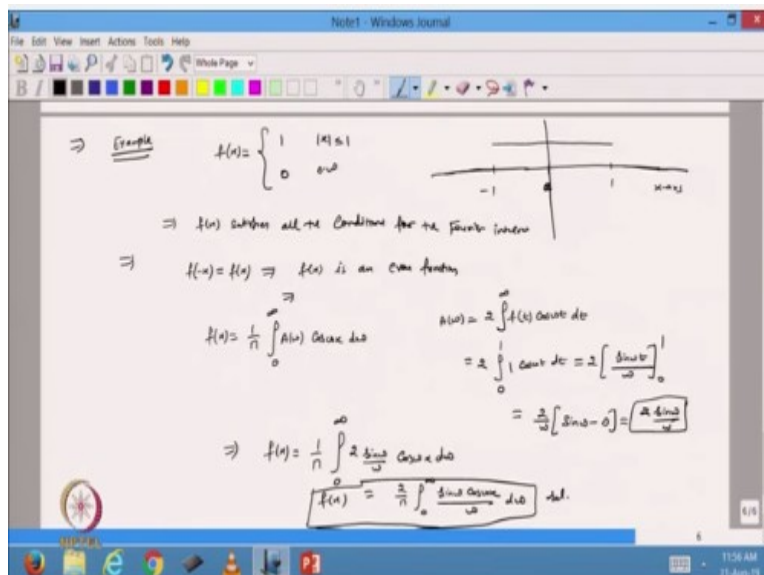 Note1 - Windows Journal
File Edit View Insert Actions Tools Help
Whole Page
B I
⇒ Example f(x) = { 1 |x| ≤ 1
0 o.w
-1 1 x-axis
⇒ f(x) satisfies all the Conditions for the Fourier
⇒ f(-x) = f(x) ⇒ f(x) is an even function
⇒
f(x) = 1/π ∫_0^∞ A(ω) Cos ωx dω
A(ω) = 2 ∫_0^∞ f(t) Cos ωt dt
= 2 ∫_0^1 1 cos ωt dt = 2 [sin ωt / ω]_0^1
= 2/ω [Sin ω - 0] = 2 sin ω / ω
⇒ f(x) = 1/π ∫_0^∞ 2 sin ω / ω Cos ωx dω
f(x) = 2/π ∫_0^∞ sin ω cos ωx / ω dω
NPTEL
6/6
6
11:56 AM